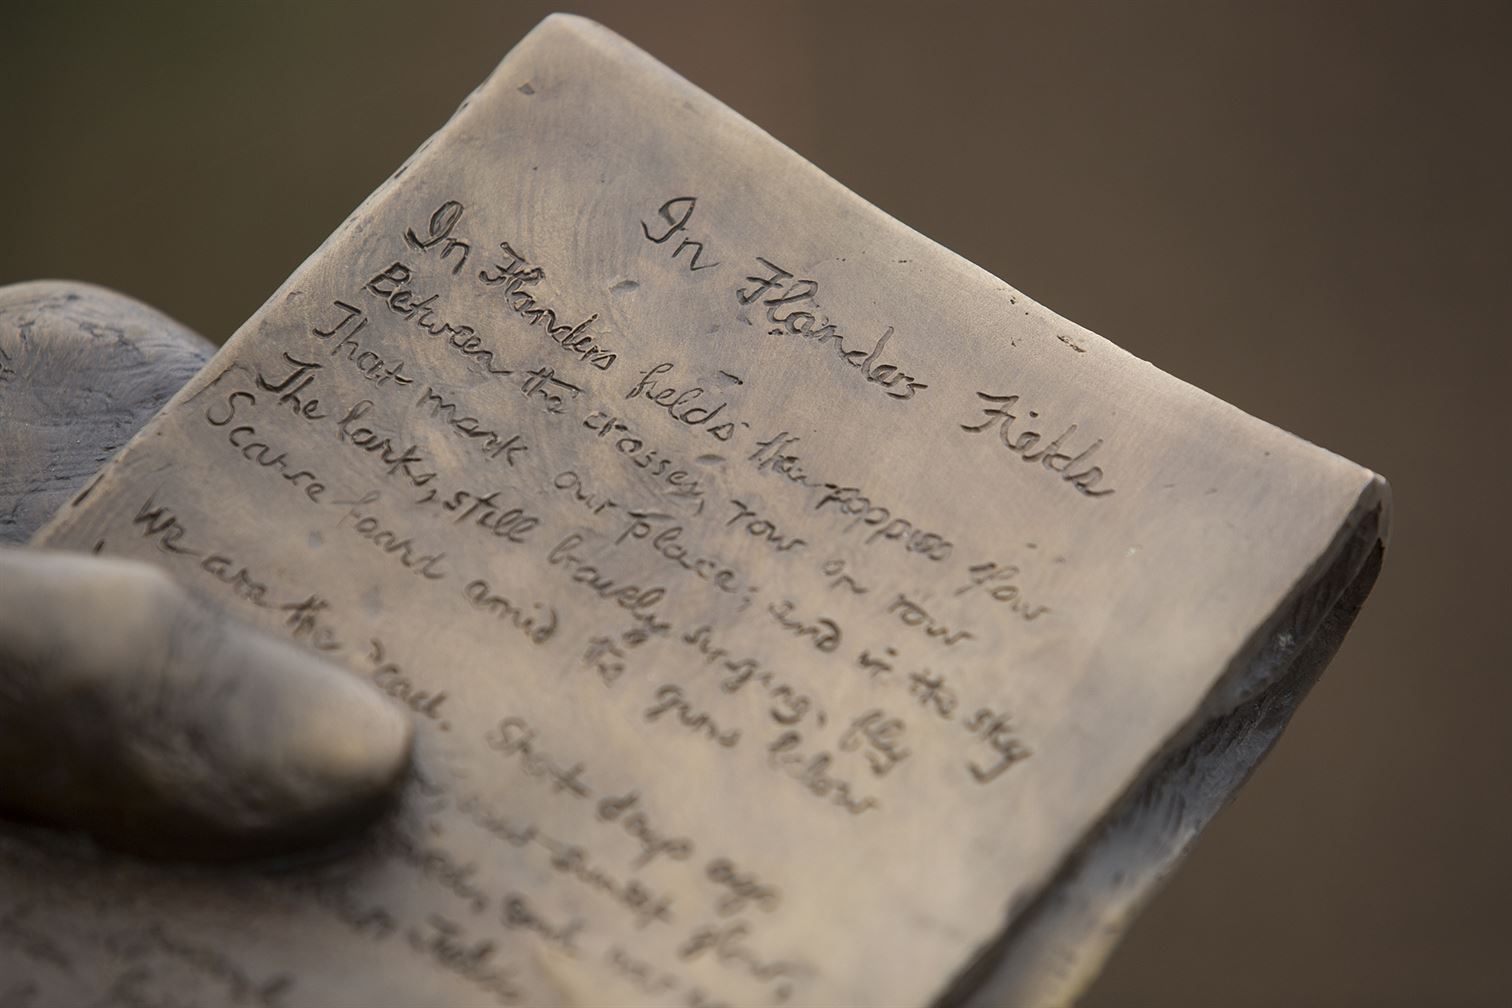 In Flanders Fields
In Flanders fields the poppies flow
Between the crosses, row on row
That mark our place; and in the sky
The larks, still bravely singing, fly
Scarce heard amid the guns below
We are the dead. Short days ago
sunset glow,
and